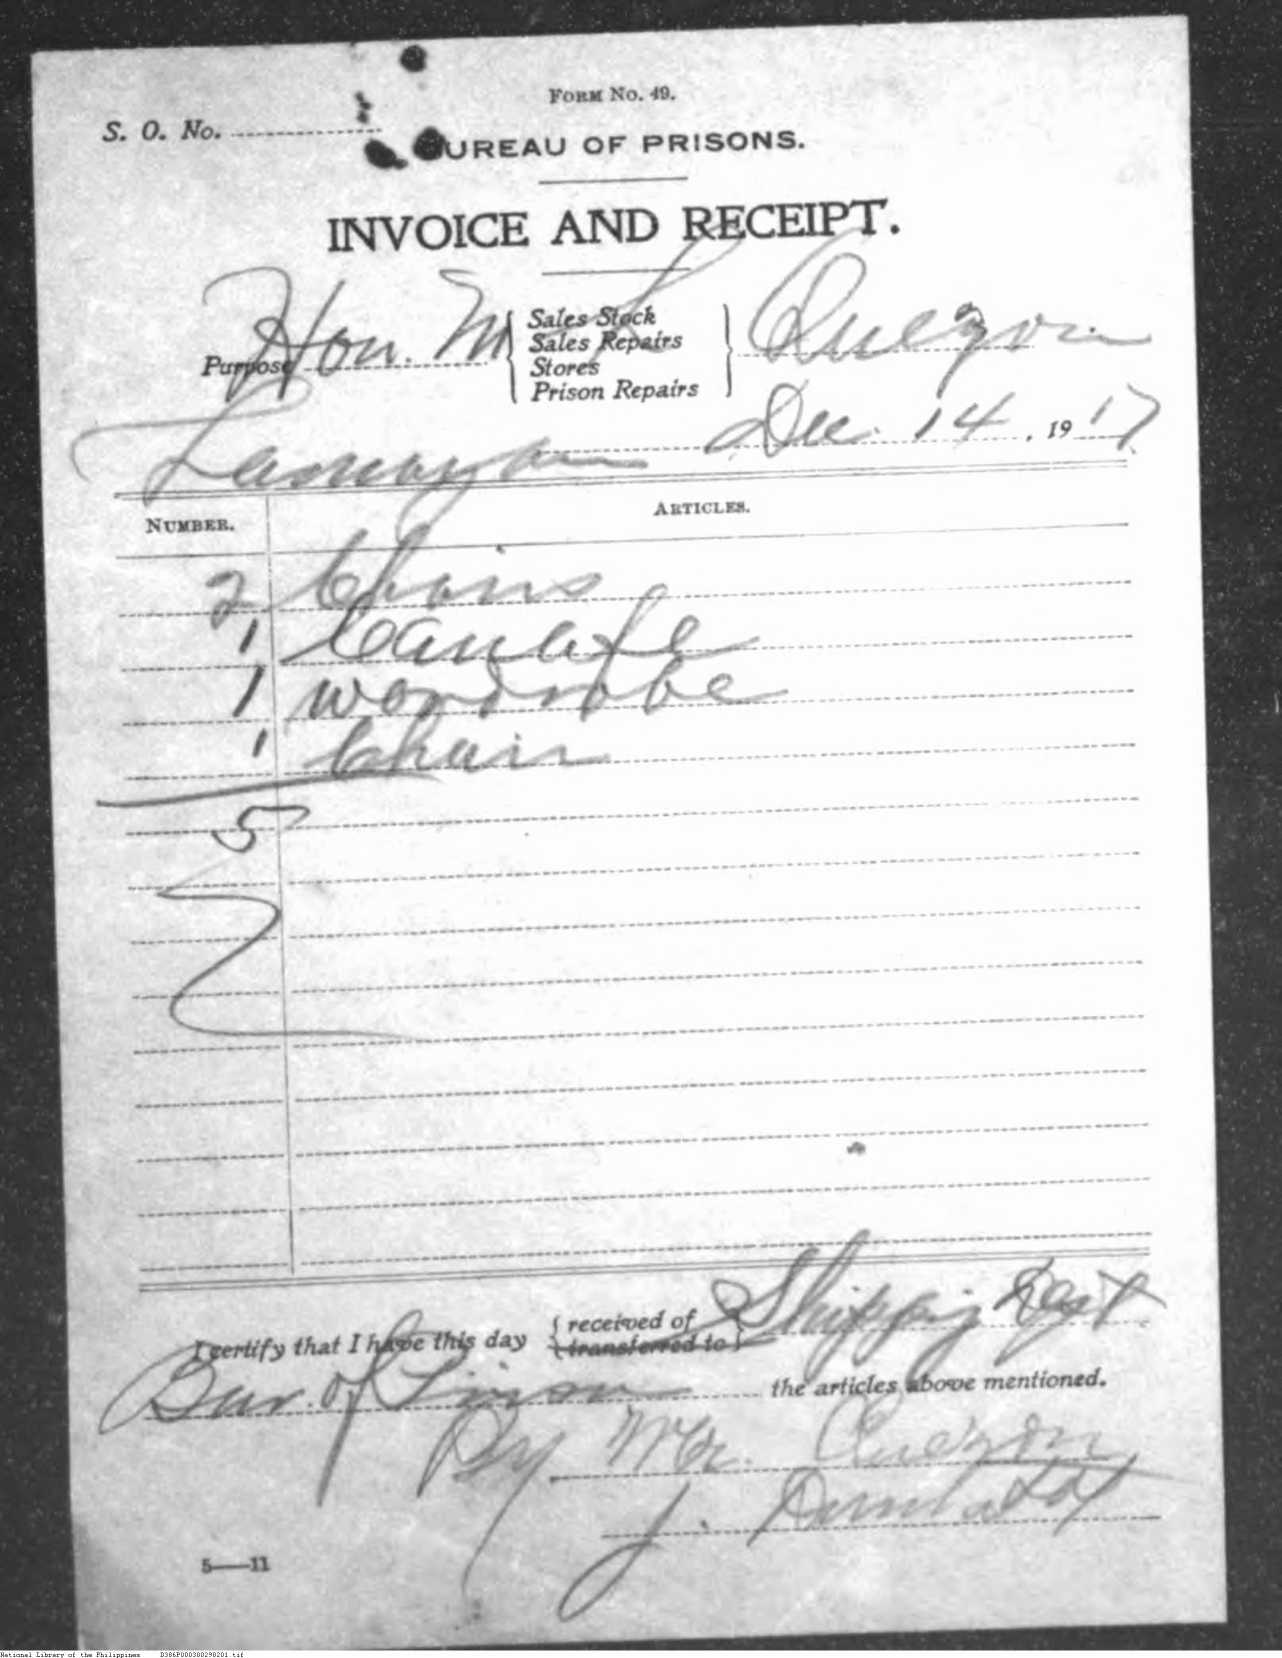 FORM No. 49.
S. O. No.
BUREAU OF PRISONS.
INVOICE AND RECEIPT.
Hon. M L Quezon
Purpose
Sales Stock
Sales Repairs
Stores
Prison Repairs
Dec. 14, 1917
NUMBER. ARTICLES.
2 Chairs
1
1 wordrobe
1 Chair
5
I certify that I have this day received of
transferred to
Shipping Dept
Bur. of Prison the articles above mentioned.
By Mr. Quezon
J.
5—11
National Library of the Philippines D386P000300298201.tif